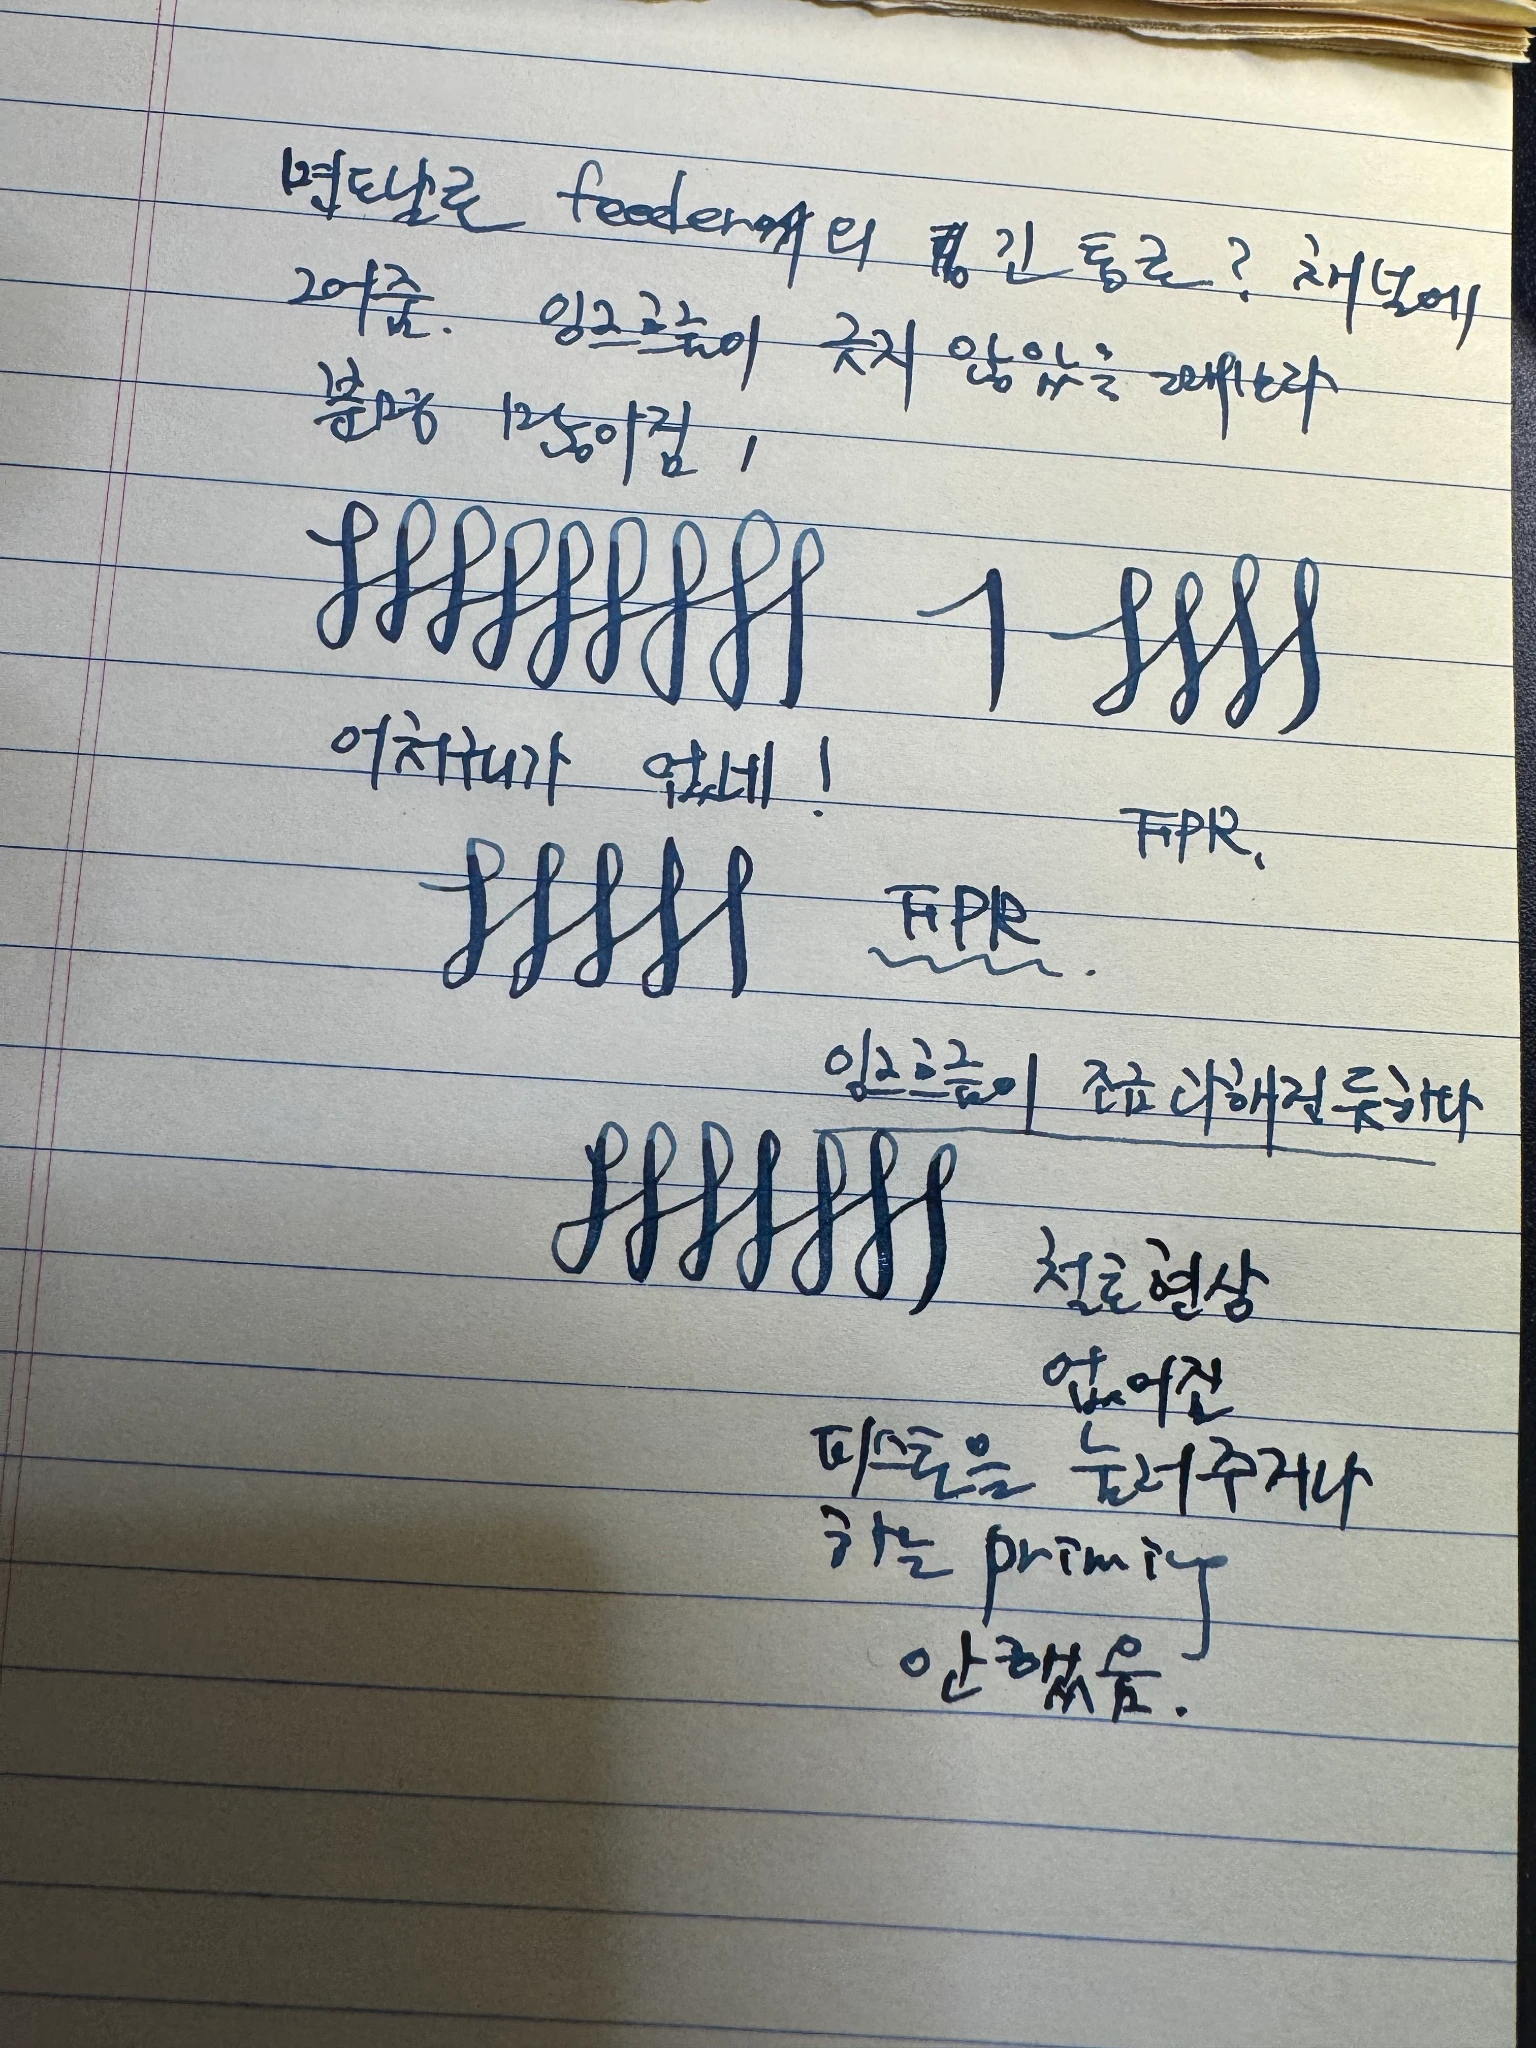 면도날로 feeder에의 긴 통로? 채널에
그어줌. 잉크흐름이 긋지 않았을 때보다
분명 많아짐!
어처구니가 없네!
FPR.
FPR.
잉크흐름이 조금 더 해진 듯하다
철로현상
없어진
피스톤을 눌러주거나
하는 priming
안 했음.